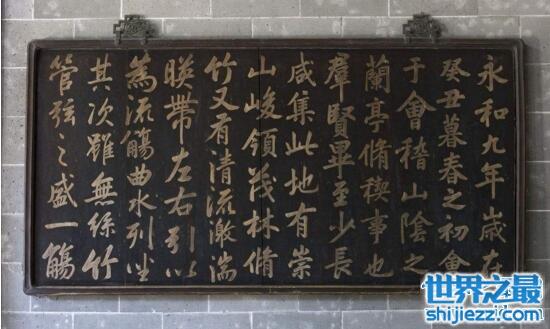 永和九年歲在
癸丑暮春之初會
于會稽山陰之
蘭亭脩稧事也
羣賢畢至少長
咸集此地有崇
山峻領茂林脩
竹又有清流激湍
暎帶左右引以
為流觴曲水列坐
其次雖無絲竹
管弦之盛一觴
世界之最
shijiezz.com